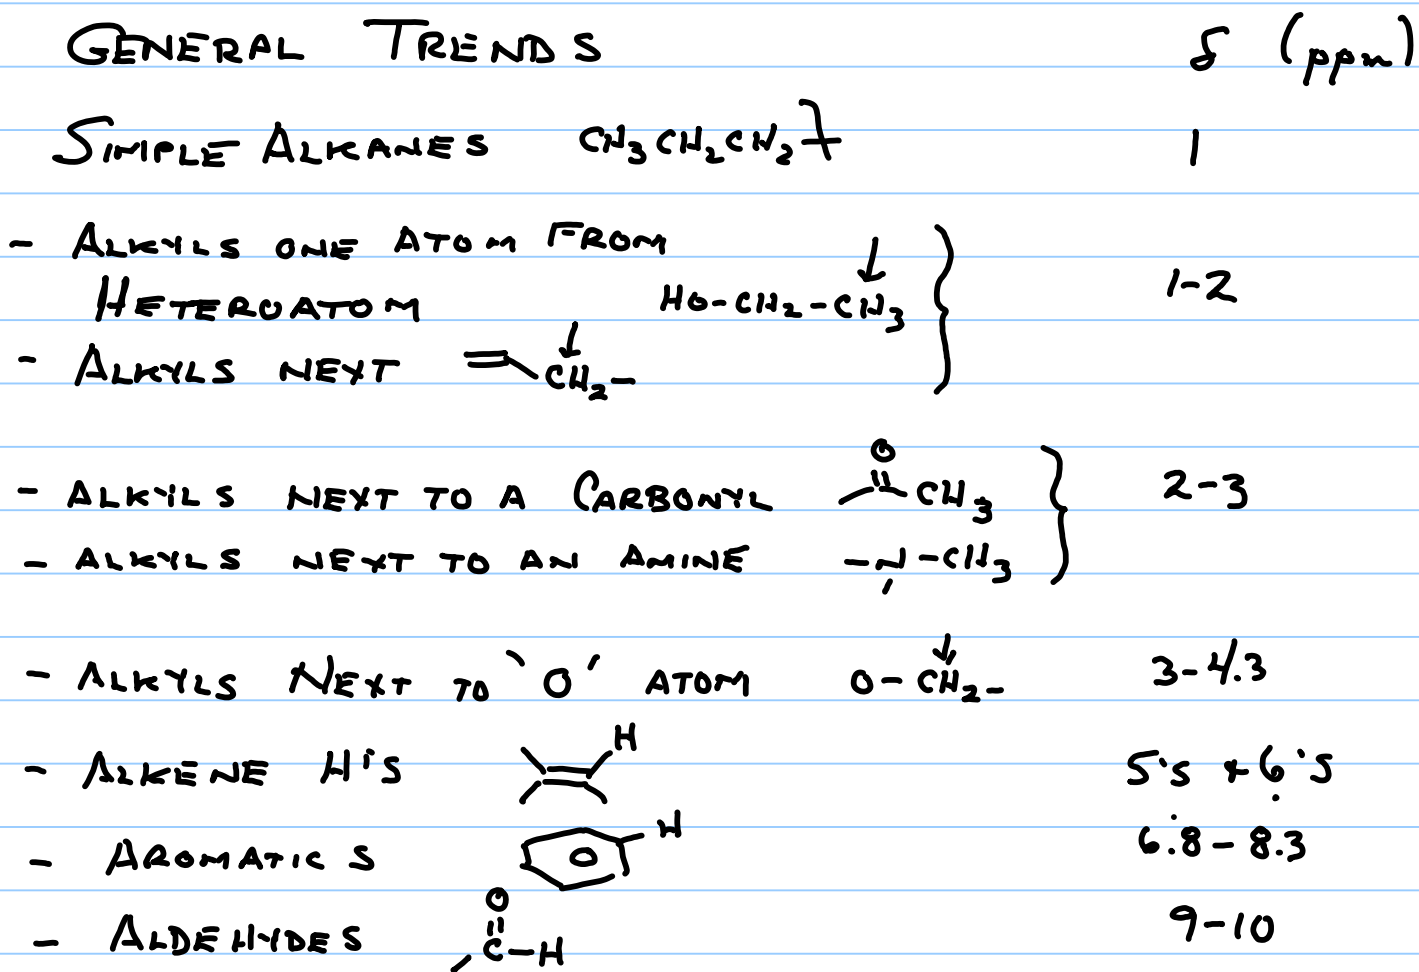 GENERAL TRENDS δ (ppm)
SIMPLE ALKANES CH3CH2CH2 1
- ALKYLS ONE ATOM FROM
HETEROATOM HO-CH2-CH3 1-2
- ALKYLS NEXT CH2-
O
- ALKYLS NEXT TO A CARBONYL CH3 2-3
- ALKYLS NEXT TO AN AMINE -N-CH3
- ALKYLS NEXT TO 'O' ATOM O-CH2- 3-4.3
H
- ALKENE H's 5's & 6's
- AROMATICS H 6.8-8.3
O
- ALDEHYDES C-H 9-10